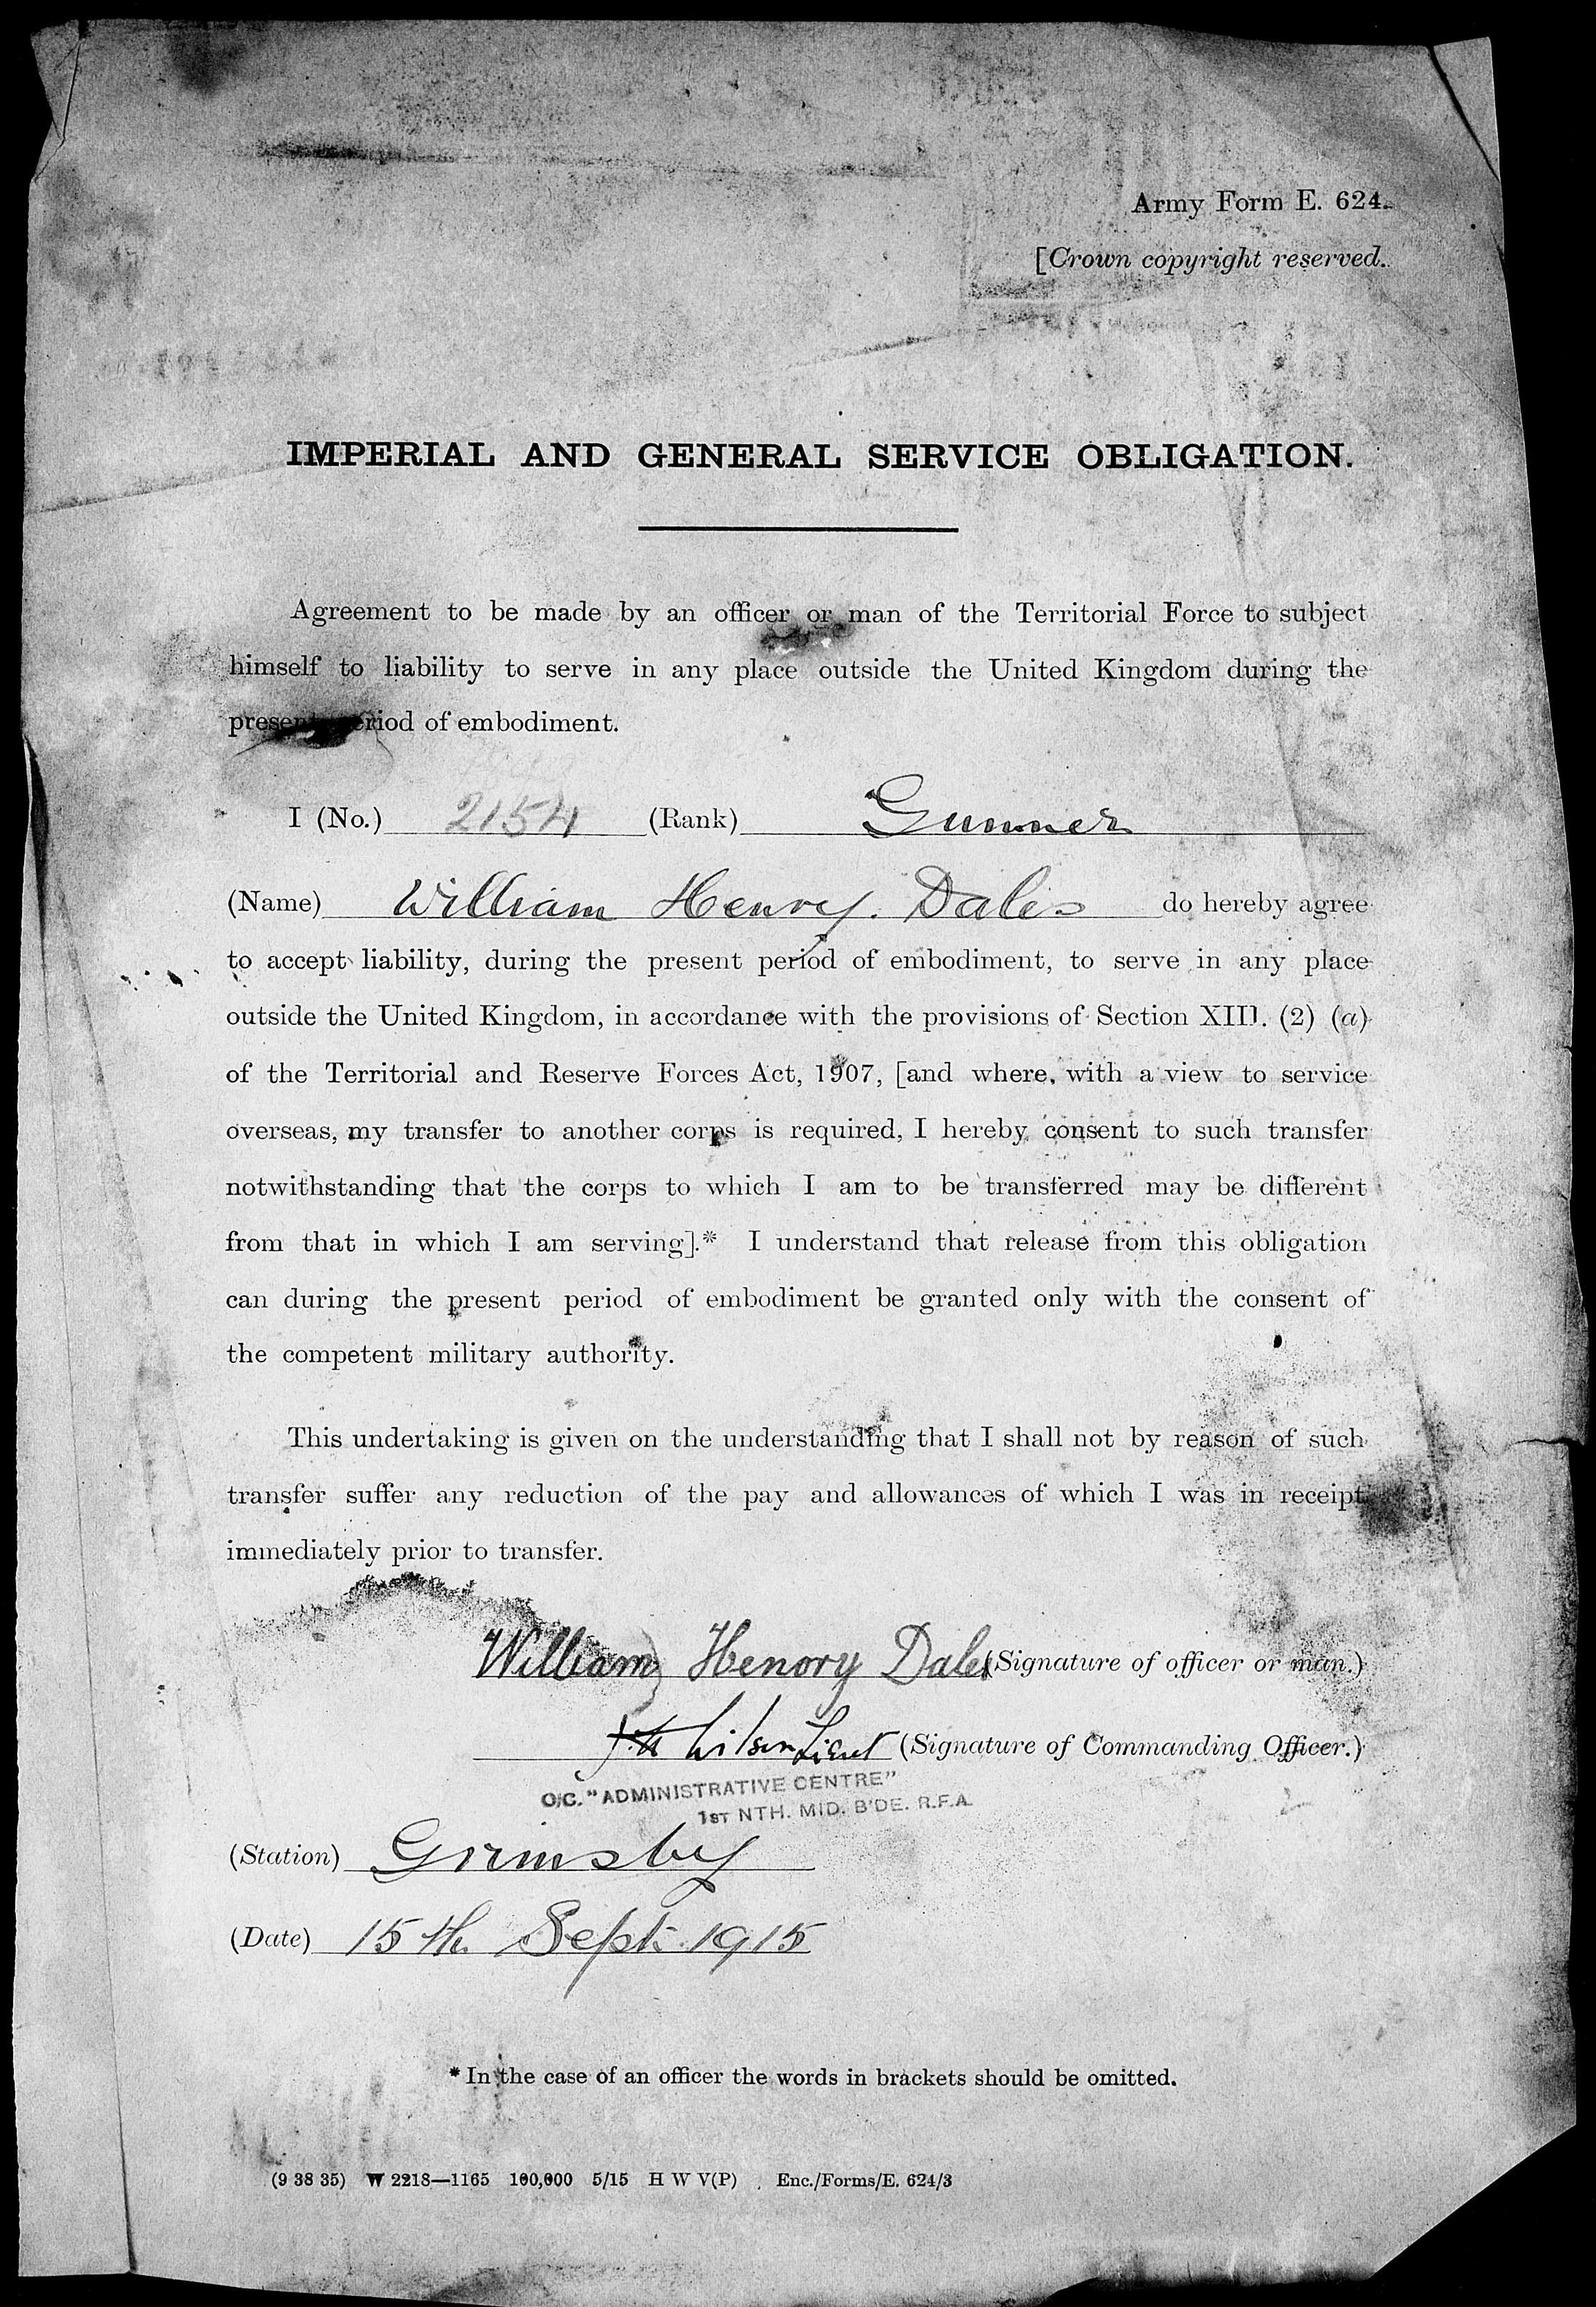 Army Form E. 624.
[Crown copyright reserved.
IMPERIAL AND GENERAL SERVICE OBLIGATION.
Agreement to be made by an officer or man of the Territorial Force to subject
himself to liability to serve in any place outside the United Kingdom during the
present period of embodiment.
I (No.) 2154 (Rank) Gunner
(Name) William Henry. Dales do hereby agree
to accept liability, during the present period of embodiment, to serve in any place
outside the United Kingdom, in accordance with the provisions of Section XIII. (2) (a)
of the Territorial and Reserve Forces Act, 1907, [and where, with a view to service
overseas, my transfer to another corps is required, I hereby consent to such transfer
notwithstanding that the corps to which I am to be transferred may be different
from that in which I am serving].* I understand that release from this obligation
can during the present period of embodiment be granted only with the consent of
the competent military authority.
This undertaking is given on the understanding that I shall not by reason of such
transfer suffer any reduction of the pay and allowances of which I was in receipt
immediately prior to transfer.
William Henory Dales (Signature of officer or man.)
Wilson Lieut (Signature of Commanding Officer.)
O/C. "ADMINISTRATIVE CENTRE"
1ST NTH. MID. B'DE. R.F.A.
(Station) Grimsby
(Date) 15th Sept. 1915
* In the case of an officer the words in brackets should be omitted.
(9 38 35) W 2218—1165 100,000 5/15 H W V(P) Enc./Forms/E. 624/3